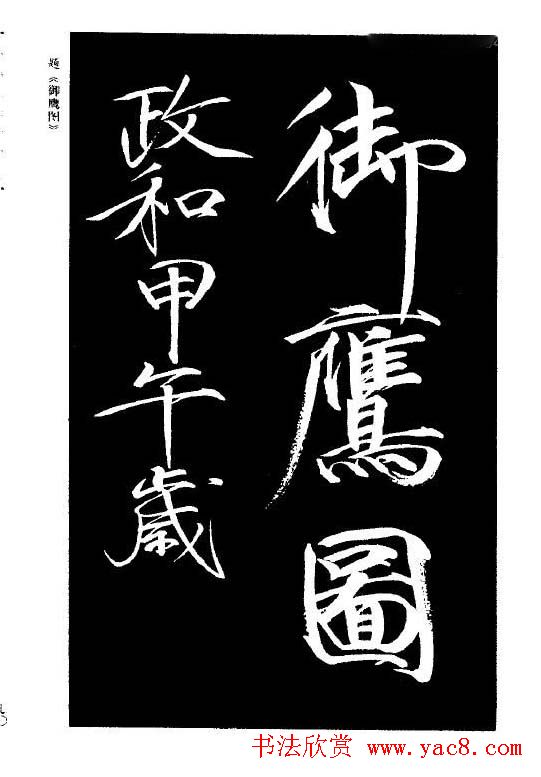 御鷹圖
政和甲午歲
题《御鹰图》
书法欣赏 www.yac8.com